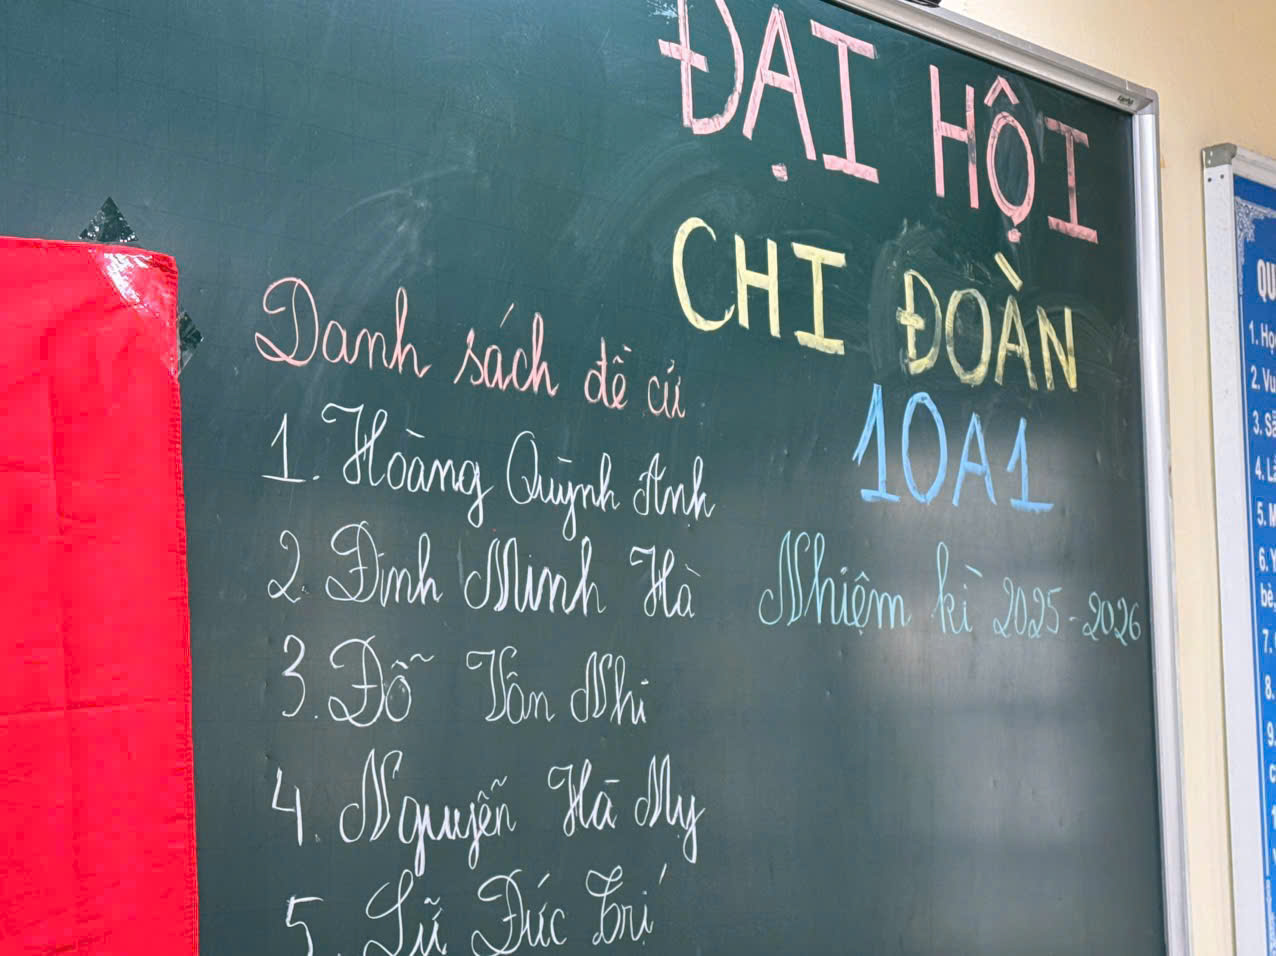 ĐẠI HỘI
CHI ĐOÀN
10A1
Nhiệm kì 2025-2026
Danh sách đề cử
1. Hoàng Quỳnh Anh
2. Đinh Minh Hà
3. Đỗ Vân Nhi
4. Nguyễn Hà My
5. Lữ Đức Trí
QU
1. Họ
2. Vu
3.
4.
5.
6.
bè,
7.
8.
9.